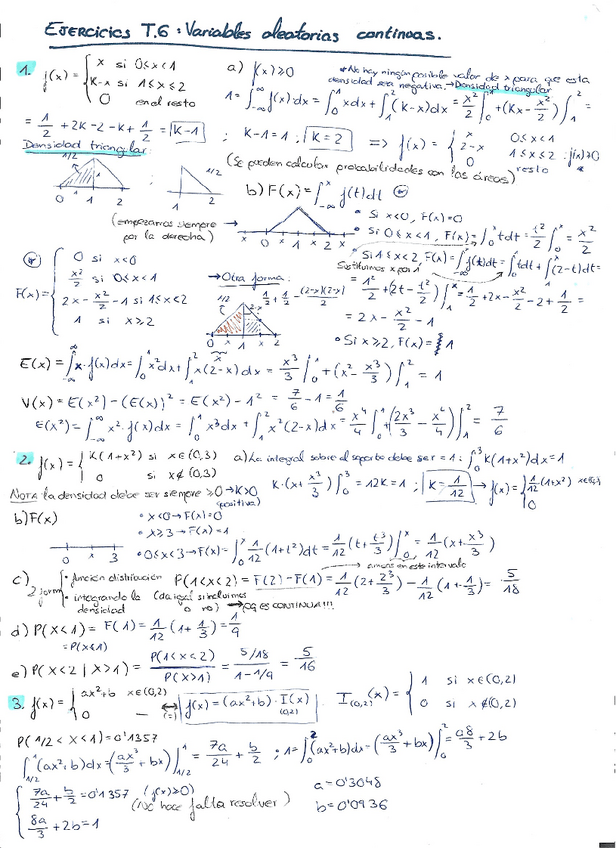 EJERCICIOS T.6: Variables aleatorias continuas.
1. f(x) = { x si 0≤x<1
K-x si 1≤x≤2
0 en el resto
a) f(x)≥0
*No hay ningún posible valor de x para que esta densidad sea negativa. → Densidad triangular
1 = ∫_{-∞}^{∞} f(x)dx = ∫_0^1 xdx + ∫_1^2 (K-x)dx = x²/2 ]_0^1 + (Kx - x²/2) ]_1^2 =
= 1/2 + 2K - 2 - K + 1/2 = K-1 ; K-1=1 ; K=2 ⇒ f(x) = { x 0≤x<1
2-x 1≤x≤2 : f(x)≥0
0 resto
Densidad triangular:
(Se pueden calcular probabilidades con las áreas)
1/2
1 2 ; 1 2 1/2
b) F(x) = ∫_{-∞}^x f(t)dt
(empezamos siempre por la derecha) →
x 0 x 1 x 2 x
• Si x<0, F(x)=0
• Si 0≤x<1, F(x) = ∫_0^x tdt = t²/2 ]_0^x = x²/2
• Si 1≤x<2, F(x) = ∫ f(t)dt = ∫_0^1 tdt + ∫_1^x (2-t)dt =
Sustituimos x por 1
= 1²/2 + (2t - t²/2) ]_1^x = 1/2 + 2x - x²/2 - 2 + 1/2 =
= 2x - x²/2 - 1
• Si x≥2, F(x) = 1
F(x) = { 0 si x<0
x²/2 si 0≤x<1
2x - x²/2 - 1 si 1≤x<2
1 si x≥2
→ Otra forma:
1/2 1/2 + 1/2 - (2-x)(2-x)/2
2-x
0 1 x 2
E(x) = ∫_{-∞}^{∞} x·f(x)dx = ∫_0^1 x²dx + ∫_1^2 x(2-x)dx = x³/3 ]_0^1 + (x² - x³/3) ]_1^2 = 1
V(x) = E(x²) - (E(x))² = E(x²) - 1² = 7/6 - 1 = 1/6
E(x²) = ∫_{-∞}^{∞} x²·f(x)dx = ∫_0^1 x³dx + ∫_1^2 x²(2-x)dx = x⁴/4 ]_0^1 + (2x³/3 - x⁴/4) ]_1^2 = 7/6
2. f(x) = { K(1+x²) si x∈(0,3)
0 si x∉(0,3)
a) La integral sobre el soporte debe ser = 1: ∫_0^3 K(1+x²)dx = 1
NOTA la densidad debe ser siempre ≥0 → K>0 (positiva)
K·(x + x³/3) ]_0^3 = 12K = 1 ; K = 1/12 → f(x) = { 1/12 (1+x²) x∈(0,3)
0
b) F(x)
0 3
• x<0 → F(x)=0
• x≥3 → F(x)=1
• 0≤x<3 → F(x) = ∫_0^x 1/12 (1+t²)dt = 1/12 (t + t³/3) ]_0^x = 1/12 (x + x³/3)
c) 2 formas • función distribución P(1<x<2) = F(2) - F(1) = 1/12 (2 + 2³/3) - 1/12 (1 + 1/3) = 5/18
ambos en este intervalo
• integrando la densidad (da igual si incluimos o no) → ¡¡¡CONTINUA!!!
d) P(x<1) = F(1) = 1/12 (1 + 1/3) = 1/9
= P(x≤1)
e) P(x<2 | x>1) = P(1<x<2)/P(x>1) = (5/18)/(1-1/9) = 5/16
3. f(x) = { ax²+b x∈(0,2)
0 —
⟷ (=) f(x) = (ax²+b)·I(x) (0,2)
I_(0,2)(x) = { 1 si x∈(0,2)
0 si x∉(0,2)
P(1/2 < x < 1) = 0'1357
∫_{1/2}^1 (ax²+b)dx = (ax³/3 + bx) ]_{1/2}^1 = 7a/24 + b/2 ; 1 = ∫_0^2 (ax²+b)dx = (ax³/3 + bx) ]_0^2 = a8/3 + 2b
{ 7a/24 + b/2 = 0'1357 (f(x)≥0)
8a/3 + 2b = 1
(No hace falta resolver)
a = 0'3048
b = 0'0936